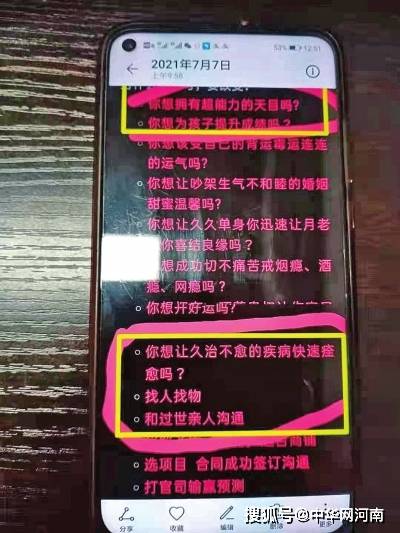 53% 12:51
2021年7月7日
上午9:58
你想拥有超能力的天目吗?
你想为孩子提升成绩吗?
你想改变自己的背运霉运连连
的运气吗?
你想让吵架生气不和睦的婚姻
甜蜜温馨吗?
你想让久久单身你迅速让月老
你喜结良缘吗?
想成功切不痛苦戒烟瘾、酒
瘾、网瘾吗?
你想开好运吗?
你想让久治不愈的疾病快速痊
愈吗?
找人找物
和过世亲人沟通
商铺
选项目 合同成功签订沟通
打官司输赢预测
分享
收藏
编辑
删除
更多
搜狐号@中华网河南